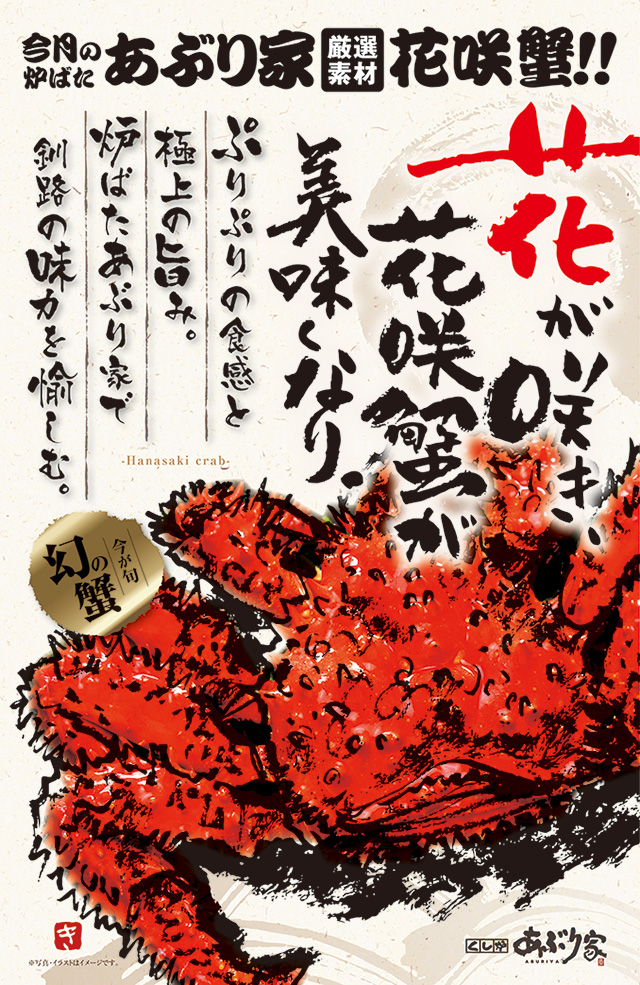 今月の
炉ばた
あぶり家
厳選
素材
花咲蟹!!
花が咲き、
花咲蟹が
美味くなり、
ぷりぷりの食感と
極上の旨み。
炉ばたあぶり家で
釧路の味力を愉しむ。
-Hanasaki crab-
今が旬
幻の蟹
※写真・イラストはイメージです。
くしや
あぶり家
ABURIYA